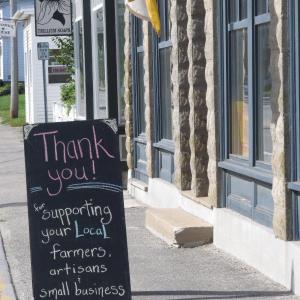 TRILLIUM SOAPS
Thank
you!
for
supporting
your Local
farmers,
artisans
& small business